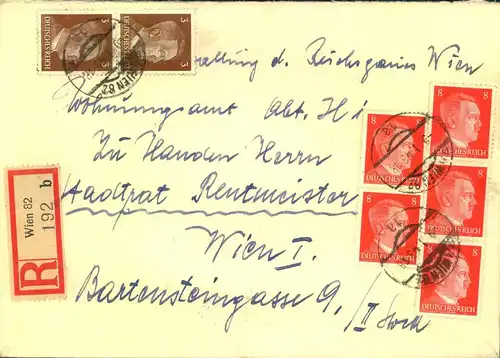 3 3
DEUTSCHES REICH DEUTSCHES REICH
WIEN 82
d. Reichsgaues Wien
Wohnungsamt Abt. H i
Zu Handen Herrn
Stadtrat Rentmeister
Wien I.
Bartensteingasse 9./II Stock
R
Wien 82 b
192
8
8
DEUTSCHES REICH
DEUTSCHES REICH
8
8
DEUTSCHES REICH
DEUTSCHES REICH
8
DEUTSCHES REICH